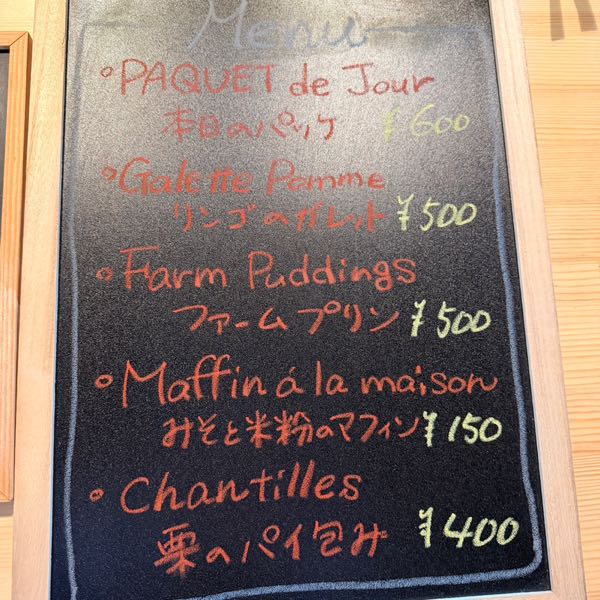 Menu
○PAQUET de Jour
本日のパッケ ¥600
○Galette Pomme
リンゴのガレット ¥500
○Farm Puddings
ファームプリン ¥500
○Maffin á la maison
みそと米粉のマフィン ¥150
○Chantilles
栗のパイ包み ¥400